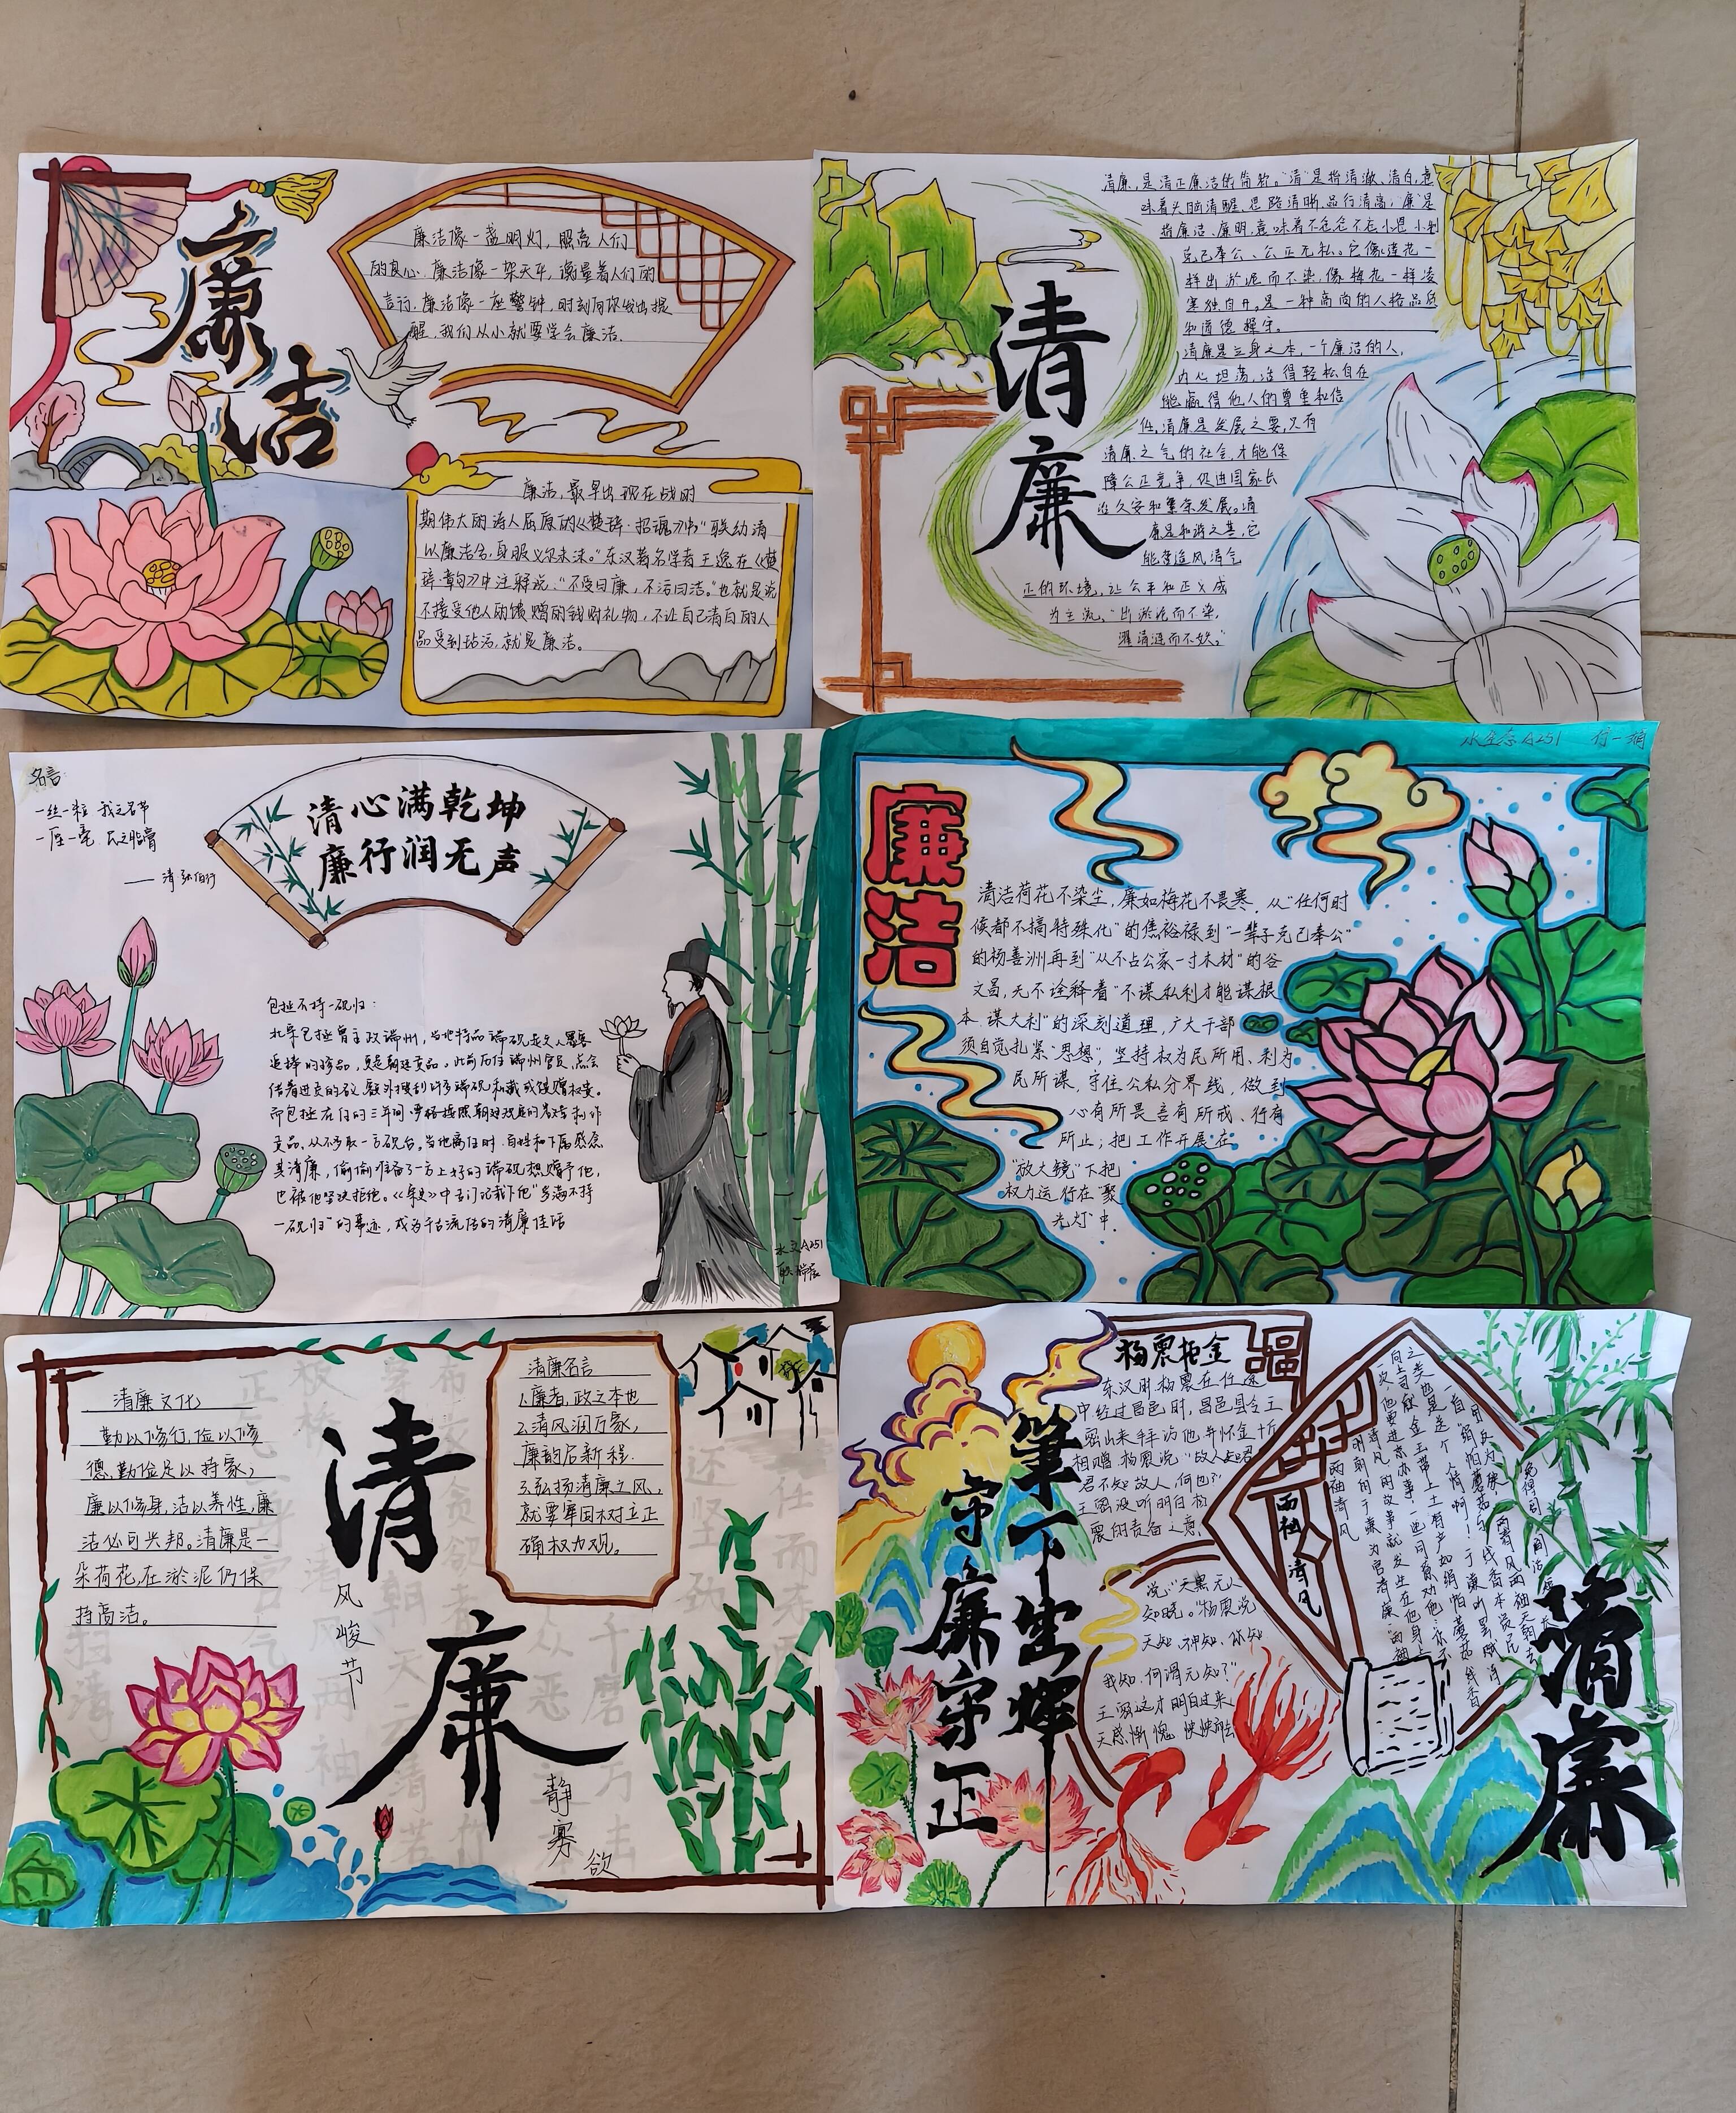 廉洁
廉洁像一盏明灯，照亮人们
的良心.廉洁像一架天平，衡量着人们的
言行.廉洁像一座警钟，时刻向你发出提
醒.我们从小就要学会廉洁.
廉洁，最早出现在战时
期伟大的诗人屈原的《楚辞·招魂》中“朕幼清
以廉洁兮,身服义尔未沫。”东汉著名学者王逸在《楚
辞·章句》中注释说:“不受曰廉，不污曰洁。”也就是说
不接受他人的馈赠的钱财礼物，不让自己清白的人
品受到玷污,就是廉洁。
清廉
清廉,是清正廉洁的简称。“清”是指清澈、清白,意
味着头脑清醒、思路清晰、品行清高；廉”是
指廉洁、廉明,意味着不贪念不在小恩小利
克己奉公、公正无私。它像莲花一
样出淤泥而不染,像梅花一样凌
寒独自开。是一种高尚的人格品质
和道德操守。
清廉是立身之本,一个廉洁的人,
内心坦荡,活得轻松自在
能赢得他人的尊重和信
任,清廉是发展之要,只有
清廉之气的社会,才能保
障公正竞争,促进国家长
治久安和繁荣发展。清
廉是和谐之基,它
能营造风清气
正的环境,让公平和正义成
为主流。“出淤泥而不染,
濯清涟而不妖。”
名言:
一丝一粒 我之名节
一厘一毫 民之脂膏
——清 张伯行
清心满乾坤
廉行润无声
包拯不持一砚归：
北宋包拯曾主政端州，当地特品端砚是文人墨客
追捧的珍品，更是朝廷贡品。此前历任端州官员,总会
借着进贡的名义,额外搜刮许多端砚私藏或馈赠权贵。
而包拯在任的三年间,严格按照朝廷规定的号数制作
贡品、从不多取一方砚台。当他离任时,百姓和下属感念
其清廉，偷偷准备了一方上好的端砚想赠予他,
也被他坚决拒绝。《宋史》中专门记载下他“岁满不持
一砚归”的事迹，成为千古流传的清廉佳话
水文A251
水生态A251
廉洁
清洁荷花不染尘，廉如梅花不畏寒．从“任何时
候都不搞特殊化”的焦裕禄到“一辈子克己奉公”
的杨善洲再到“从不占公家一寸木材”的谷
文昌，无不诠释着“不谋私利才能谋根
本、谋大利”的深刻道理，广大干部
须自觉扎紧“思想”，坚持权为民所用、利为
民所谋，守住公私分界线，做到
心有所畏、言有所戒、行有
所止；把工作开展在
“放大镜”下把
权力运行在“聚
光灯”中.
清廉文化
勤以修行,俭以修
德,勤俭足以持家;
廉以修身,洁以养性,廉
洁必可兴邦。清廉是一
朵荷花,在淤泥仍保
持高洁。
清廉
风峻节
静寡欲
清廉名言
1.廉者,政之本也
2.清风润万家,
廉韵启新程.
3.弘扬清廉之风,
就要牢固树立正
确权力观。
杨震拒金
东汉时杨震在任途
中经过昌邑时,昌邑县令王
密出来手访他,并怀金十斤
相赠.杨震说:“故人知君
君不知故人,何也?”
王密没听明白杨
震的责备之意,
说:“天黑无人
知晓。”杨震说
天知、神知、你知
我知.何谓无知?”
王密这才明白过来
笔下生辉
守廉守正
两袖清风
清廉